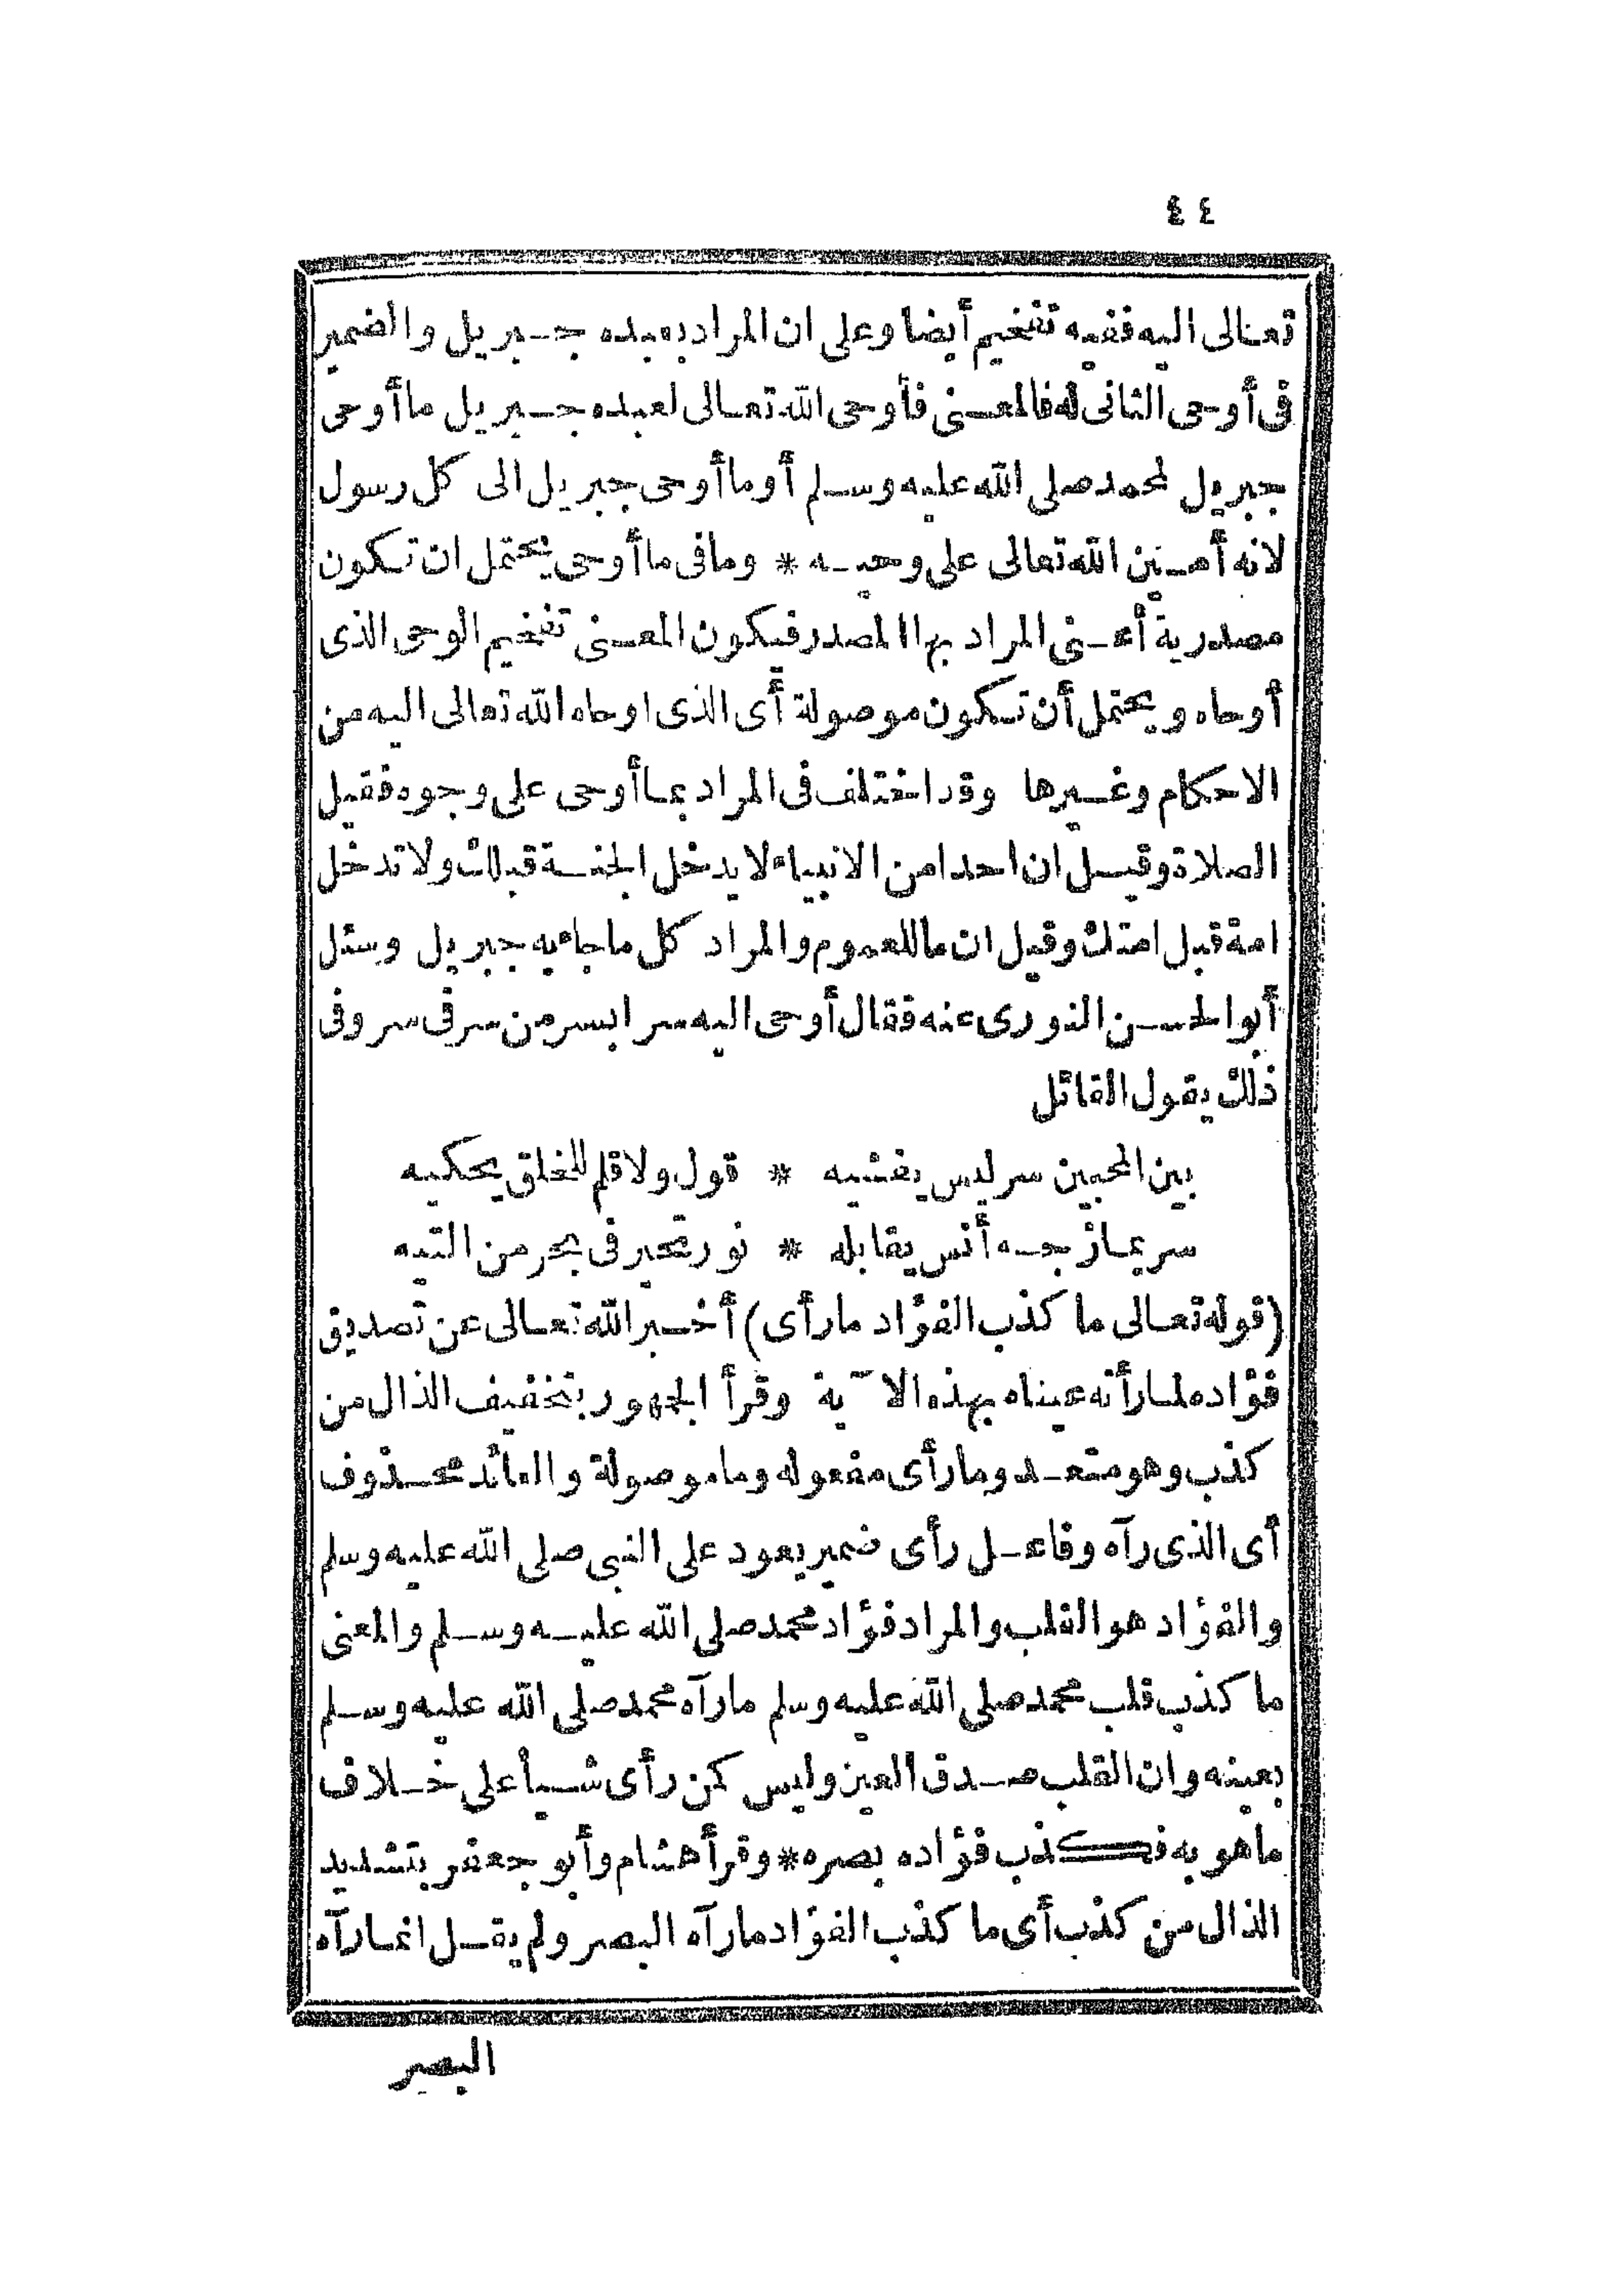 ٤٤
تعالى اليه ففيه تفخيم أيضا وعلى ان المراد بعبده جبريل والضمير
فى أوحى الثانى له فالمعنى فأوحى الله تعالى لعبده جبريل ما أوحى
جبريل لمحمد صلى الله عليه وسلم أو ما أوحى جبريل الى كل رسول
لانه أمين الله تعالى على وحيه * وما فى ما أوحى يحتمل ان تكون
مصدرية أعنى المراد بها المصدر فيكون المعنى تفخيم الوحى الذى
أوحاه ويحتمل أن تكون موصولة أى الذى اوحاه الله تعالى اليه من
الاحكام وغيرها وقد اختلف فى المراد بما أوحى على وجوه فقيل
الصلاة وقيل ان احدا من الانبياء لا يدخل الجنة قبلك ولا تدخل
امة قبل امتك وقيل ان ما للعموم والمراد كل ما جاء به جبريل وسئل
أبو الحسن النورى عنه فقال أوحى اليه سرا بسر من سر فى سر وفى
ذلك يقول القائل
بين المحبين سر ليس يفشيه * قول ولا قلم للخلق يحكيه
سر يمازجه أنس يقابله * نور تحير فى بحر من التيه
(قوله تعالى ما كذب الفؤاد ما رأى) أخبر الله تعالى عن تصديق
فؤاده لما رأته عيناه بهذه الآية وقرأ الجمهور بتخفيف الذال من
كذب وهو متعد وما رأى مفعوله وما موصولة والعائد محذوف
أى الذى رآه وفاعل رأى ضمير يعود على النبى صلى الله عليه وسلم
والفؤاد هو القلب والمراد فؤاد محمد صلى الله عليه وسلم والمعنى
ما كذب قلب محمد صلى الله عليه وسلم ما رآه محمد صلى الله عليه وسلم
بعينه وان القلب صدق العين وليس كمن رأى شيأ على خلاف
ما هو به فكذب فؤاده بصره * وقرأ هشام وأبو جعفر بتشديد
الذال من كذب أى ما كذب الفؤاد ما رآه البصر ولم يقل انما رآه
البصر